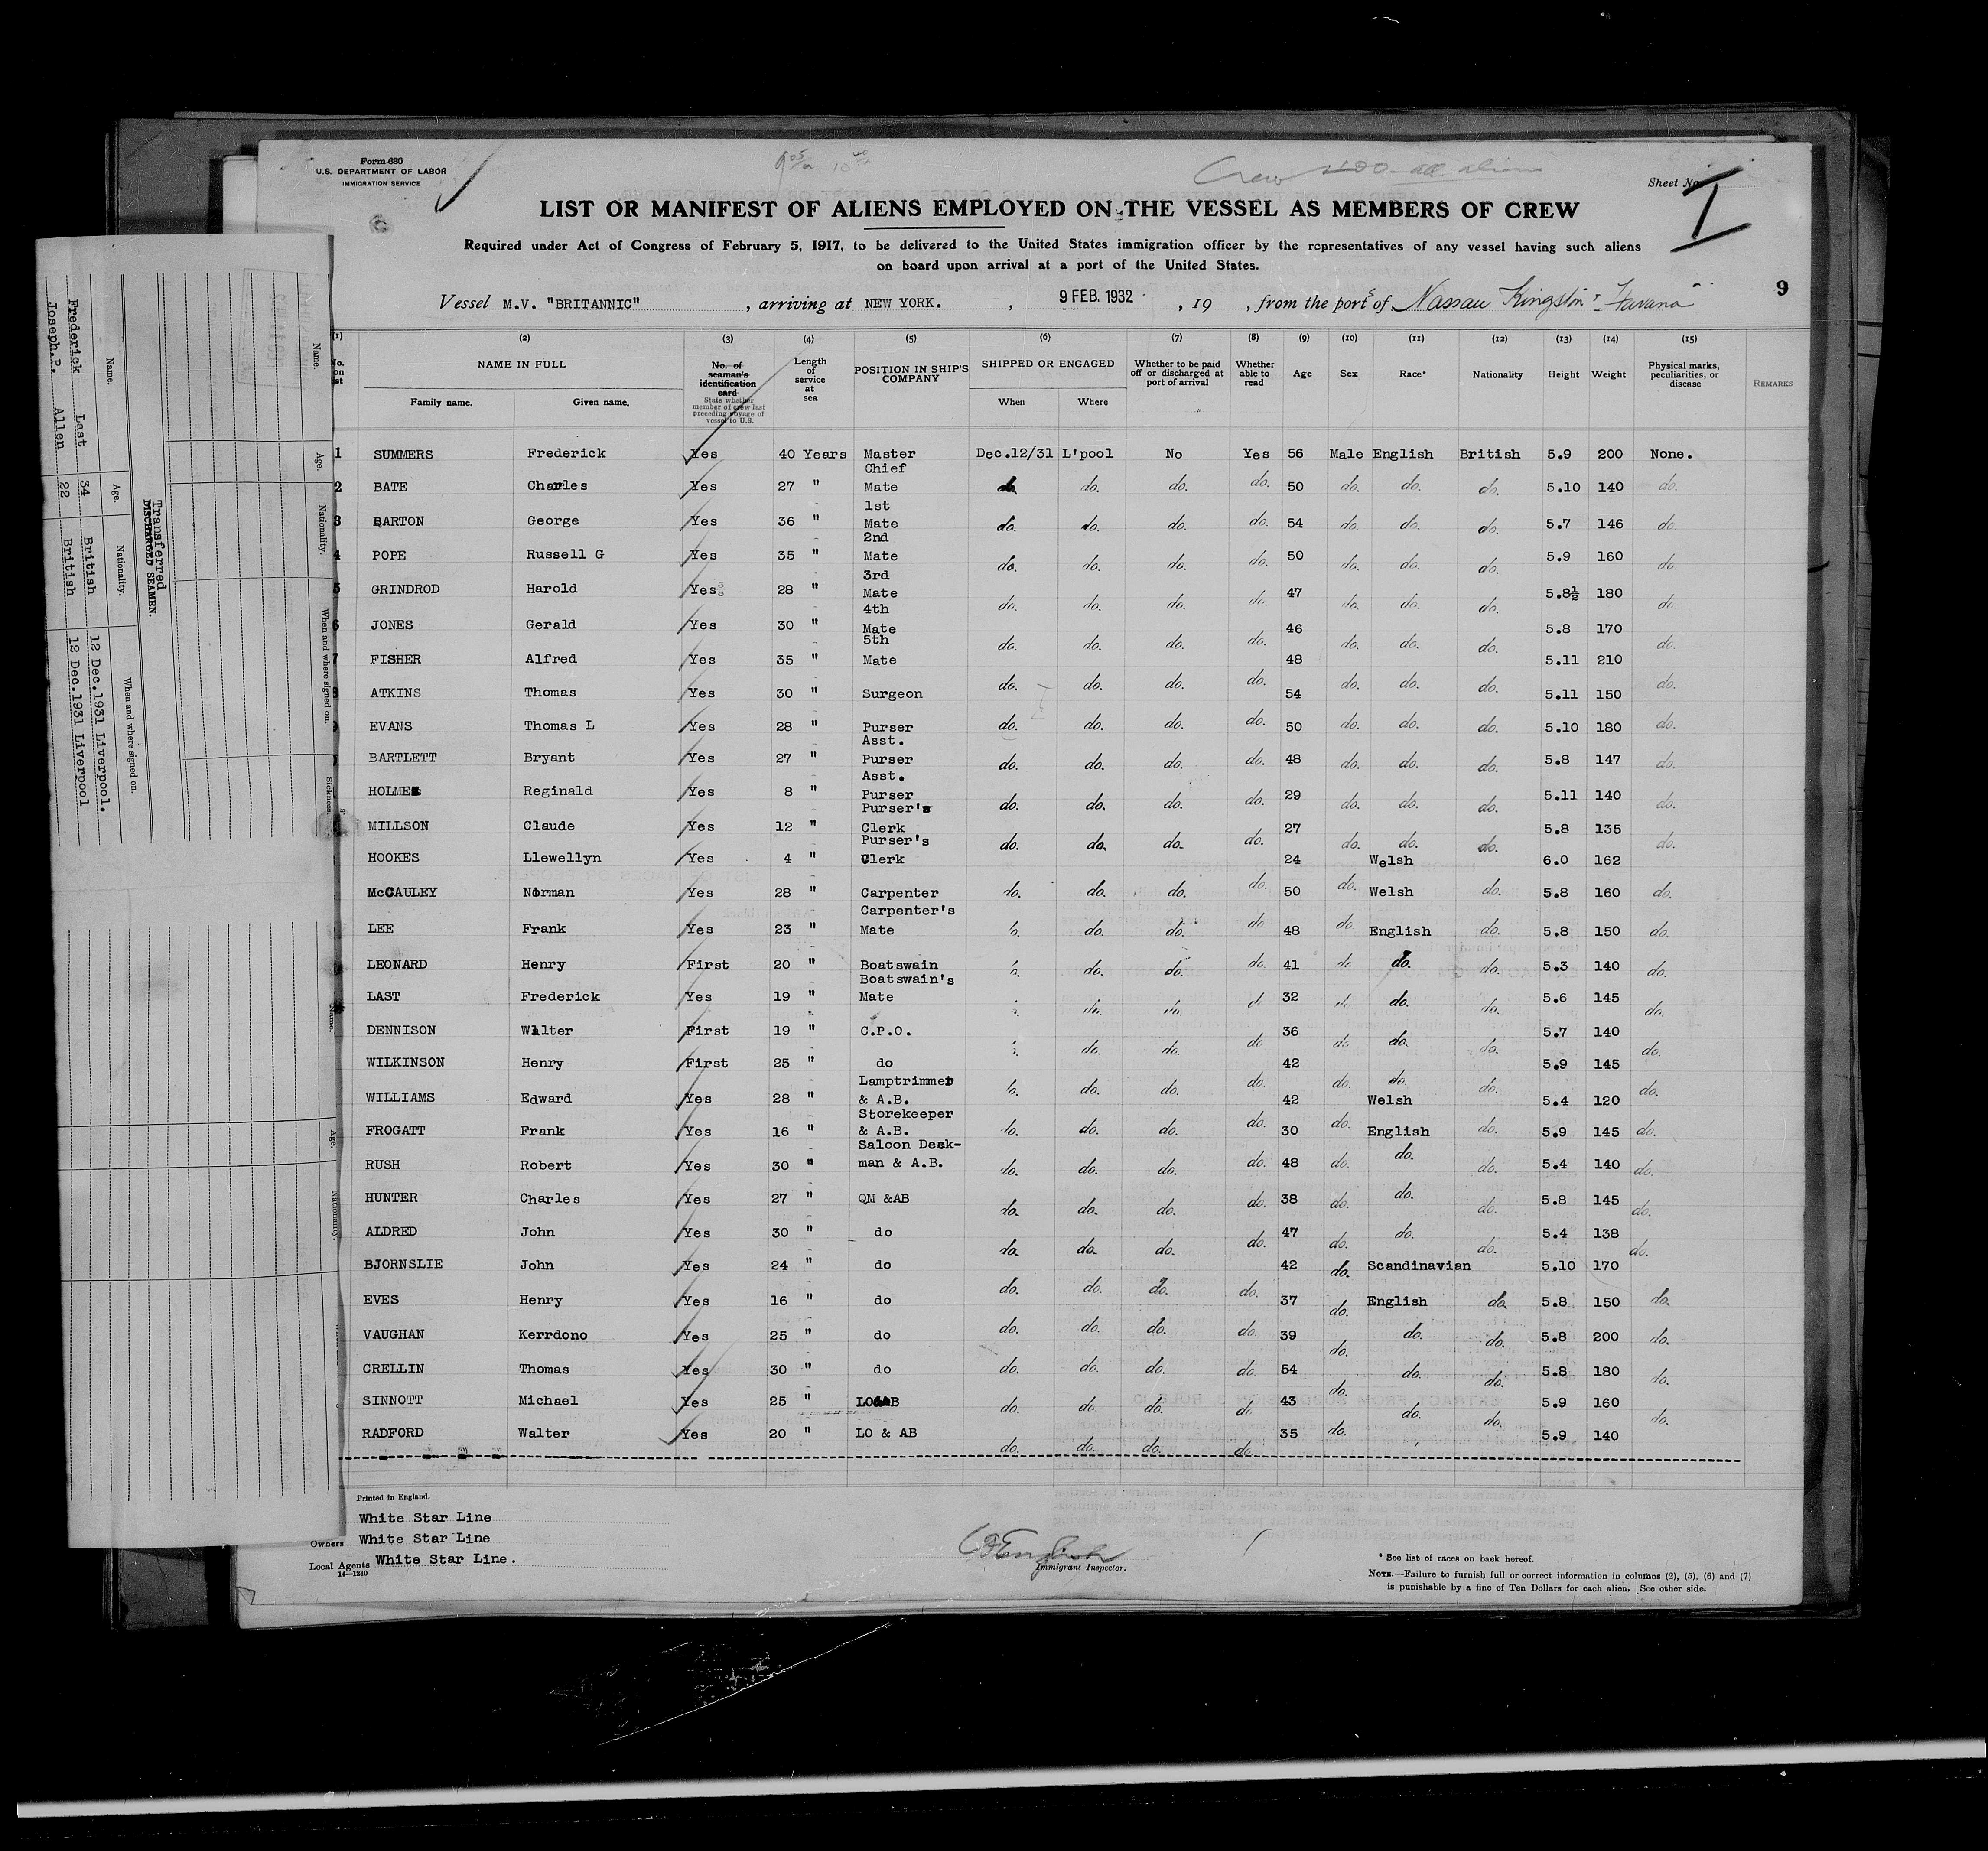 Form 680
U.S. DEPARTMENT OF LABOR
IMMIGRATION SERVICE
Crew all aliens
Sheet No. I
LIST OR MANIFEST OF ALIENS EMPLOYED ON THE VESSEL AS MEMBERS OF CREW
Required under Act of Congress of February 5, 1917, to be delivered to the United States immigration officer by the representatives of any vessel having such aliens
on board upon arrival at a port of the United States.
Vessel M.V. "BRITANNIC" , arriving at NEW YORK. , 9 FEB. 1932 , 19 , from the ports of Nassau Kingston Havana
9
(1) (2) (3) (4) (5) (6) (7) (8) (9) (10) (11) (12) (13) (14) (15)
NAME IN FULL Family name. Given name.
No. of seaman's identification card State whether member of crew last preceding voyage of vessel to U.S.
Length of service at sea
POSITION IN SHIP'S COMPANY
SHIPPED OR ENGAGED When Where
Whether to be paid off or discharged at port of arrival
Whether able to read
Age Sex Race* Nationality Height Weight
Physical marks, peculiarities, or disease
REMARKS
1 SUMMERS Frederick Yes 40 Years Master Dec.12/31 L'pool No Yes 56 Male English British 5.9 200 None.
2 BATE Charles Yes 27 " Chief Mate do. do. do. do. 50 do. do. do. 5.10 140 do.
3 BARTON George Yes 36 " 1st Mate do. do. do. do. 54 do. do. do. 5.7 146 do.
4 POPE Russell G Yes 35 " 2nd Mate do. do. do. do. 50 do. do. do. 5.9 160 do.
5 GRINDROD Harold Yes 28 " 3rd Mate do. do. do. do. 47 do. do. do. 5.8½ 180 do.
6 JONES Gerald Yes 30 " 4th Mate do. do. do. do. 46 do. do. do. 5.8 170 do.
7 FISHER Alfred Yes 35 " 5th Mate do. do. do. do. 48 do. do. do. 5.11 210 do.
8 ATKINS Thomas Yes 30 " Surgeon do. do. do. do. 54 do. do. do. 5.11 150 do.
EVANS Thomas L Yes 28 " Purser do. do. do. do. 50 do. do. do. 5.10 180 do.
BARTLETT Bryant Yes 27 " Asst. Purser do. do. do. do. 48 do. do. do. 5.8 147 do.
HOLMES Reginald Yes 8 " Asst. Purser do. do. do. do. 29 do. do. do. 5.11 140 do.
MILLSON Claude Yes 12 " Purser's Clerk do. do. do. do. 27 do. do. do. 5.8 135 do.
HOOKES Llewellyn Yes 4 " Purser's Clerk 24 Welsh 6.0 162
McCAULEY Norman Yes 28 " Carpenter do. do. do. do. 50 do. Welsh do. 5.8 160 do.
LEE Frank Yes 23 " Carpenter's Mate do. do. do 48 do. English do. 5.8 150 do.
LEONARD Henry First 20 " Boatswain do. do. do. 41 do. do. do. 5.3 140 do.
LAST Frederick Yes 19 " Boatswain's Mate do. do. d 32 d. do. do. 5.6 145 do.
DENNISON Walter First 19 " C.P.O. do. do. do 36 do do. do. 5.7 140 do.
WILKINSON Henry First 25 " do do. do. do. 42 do. do. do. 5.9 145 do.
WILLIAMS Edward Yes 28 " Lamptrimmer & A.B. 42 Welsh 5.4 120
FROGATT Frank Yes 16 " Storekeeper & A.B. do. do. do. do. 30 do. English do. 5.9 145 do.
RUSH Robert Yes 30 " Saloon Deck- man & A.B. do. do. do. do. 48 do. do. do. 5.4 140 do.
HUNTER Charles Yes 27 " QM &AB do. do. do. do. 38 do. do. do. 5.8 145 do.
ALDRED John Yes 30 " do do. do. do. do. 47 do. do. do. 5.4 138 do.
BJORNSLIE John Yes 24 " do do. do. do. do. 42 do. Scandinavian 5.10 170
EVES Henry Yes 16 " do do. do. do. do. 37 do. English do. 5.8 150 do.
VAUGHAN Kerrdono Yes 25 " do do. do. do. do. 39 do. do. do. 5.8 200 do.
CRELLIN Thomas Yes 30 " do do. do. do. do. 54 do. do. do. 5.8 180 do.
SINNOTT Michael Yes 25 " LO&AB do. do. do. do. 43 do. do. do. 5.9 160 do.
RADFORD Walter Yes 20 " LO & AB do. do. do. do. 35 5.9 140
Printed in England.
White Star Line
Owners White Star Line
Local Agents White Star Line.
14—1240
Immigrant Inspector.
* See list of races on back hereof.
NOTE.—Failure to furnish full or correct information in columns (2), (5), (6) and (7)
is punishable by a fine of Ten Dollars for each alien. See other side.
Name. Age. Nationality. When and where signed on. Sickness.
Transferred
DISCHARGED SEAMEN.
Name. Age. Nationality. When and where signed on.
Frederick Last 34 British 12 Dec.1931 Liverpool.
Joseph.P. Allen 22 British 12 Dec.1931 Liverpool
Name. Age. Nationality.